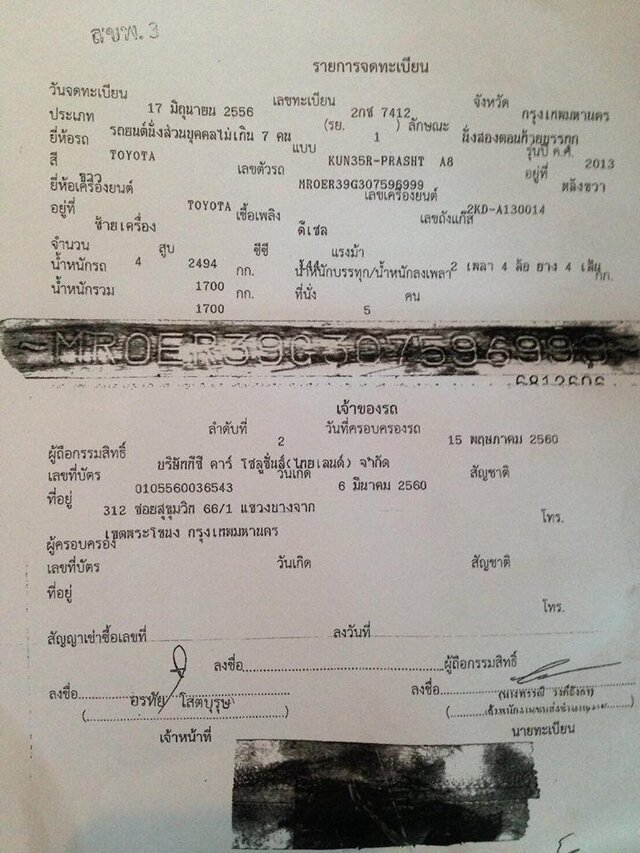 สขพ. 3
รายการจดทะเบียน
วันจดทะเบียน 17 มิถุนายน 2556 เลขทะเบียน 2กช 7412 จังหวัด กรุงเทพมหานคร
ประเภท รถยนต์นั่งส่วนบุคคลไม่เกิน 7 คน (รย. 1 ) ลักษณะ นั่งสองตอนท้ายบรรทุก
ยี่ห้อรถ TOYOTA แบบ KUN35R-PRASHT A8 รุ่นปี ค.ศ. 2013
สี ขาว เลขตัวรถ MROER39G307596999 อยู่ที่ หลังขวา
ยี่ห้อเครื่องยนต์ TOYOTA เลขเครื่องยนต์ 2KD-A130014
อยู่ที่ ซ้ายเครื่อง เชื้อเพลิง ดีเซล เลขถังแก๊ส
จำนวน 4 สูบ 2494 ซีซี 144 แรงม้า 2 เพลา 4 ล้อ ยาง 4 เส้น
น้ำหนักรถ 1700 กก. น้ำหนักบรรทุก/น้ำหนักลงเพลา กก.
น้ำหนักรวม 1700 กก. ที่นั่ง 5 คน
MROER39G307596999
เจ้าของรถ
ลำดับที่ 2 วันที่ครอบครองรถ 15 พฤษภาคม 2560
ผู้ถือกรรมสิทธิ์ บริษัทกีซี คาร์ โซลูชั่นส์(ไทยแลนด์) จำกัด
เลขที่บัตร 0105560036543 วันเกิด 6 มีนาคม 2560 สัญชาติ
ที่อยู่ 312 ซอยสุขุมวิท 66/1 แขวงบางจาก
เขตพระโขนง กรุงเทพมหานคร โทร.
ผู้ครอบครอง
เลขที่บัตร วันเกิด สัญชาติ
ที่อยู่
โทร.
สัญญาเช่าซื้อเลขที่ ลงวันที่
ลงชื่อ ผู้ถือกรรมสิทธิ์
ลงชื่อ ลงชื่อ
(อรทัย โสตบุรุษ)
เจ้าหน้าที่ นายทะเบียน